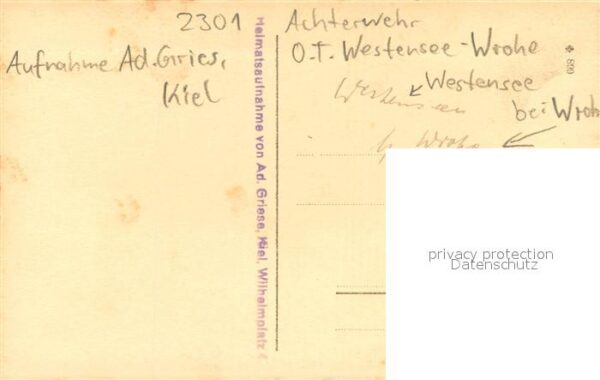 2301
Aufnahme Ad. Gries,
Kiel
Heimatsaufnahme von Ad. Griese, Kiel, Wilhelmplatz
Achterwehr
O.T. Westensee-Wrohe
Westensee
bei Wrohe
Westensee
b. Wrohe
899
privacy protection
Datenschutz